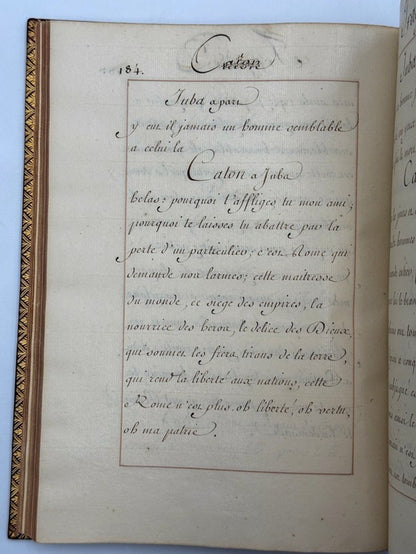 184. Caton
Juba a part
y eut il jamais un homme semblable
a celui la
Caton a Juba
helas: pourquoi t'affliges tu mon ami;
pourquoi te laisses tu abattre par la
perte d'un particulier; c'est Rome qui
demande nos larmes; cette maitresse
du monde, ce siege des empires, la
nourrice des heros, le delice des Dieux,
qui soumet les fiers tirans de la terre,
qui rend la liberté aux nations, cette
Rome n'est plus. oh liberté! oh vertu;
oh ma patrie.